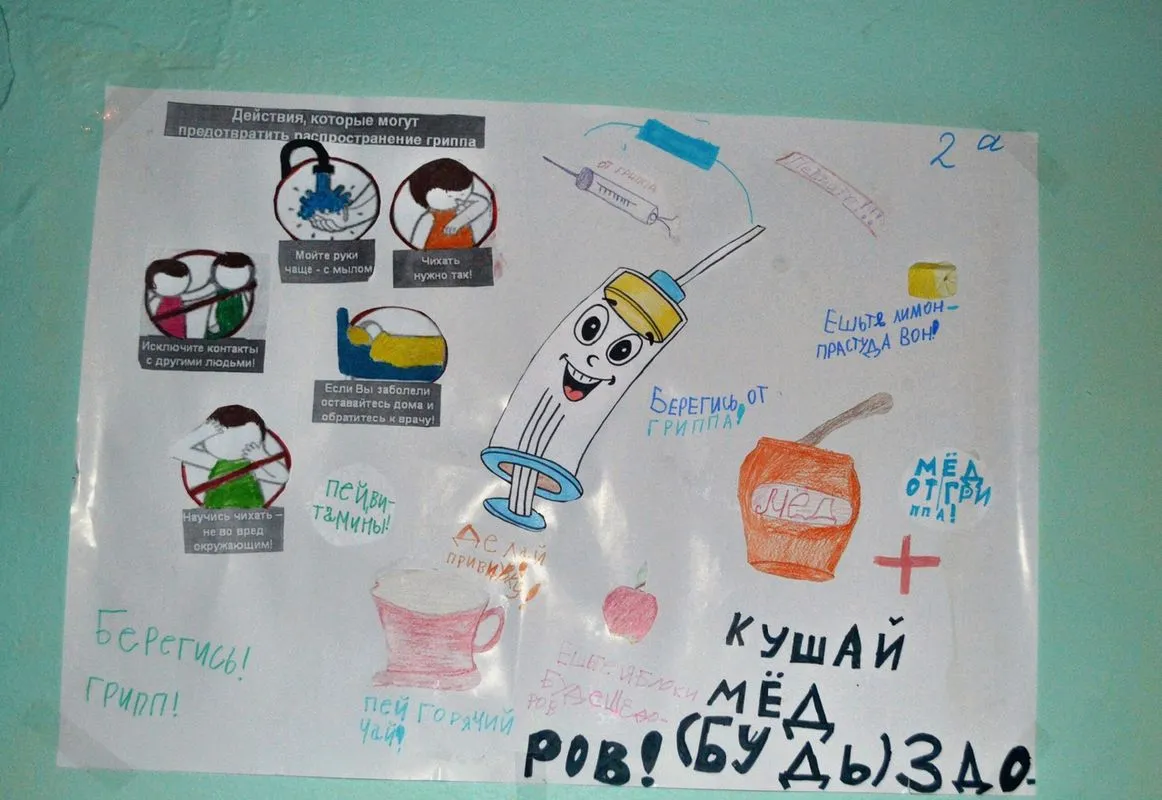 Действия, которые могут
предотвратить распространение гриппа
2 а
от гриппа
Мойте руки
чаще - с мылом
Чихать
нужно так!
Исключите контакты
с другими людьми!
Если Вы заболели
оставайтесь дома и
обратитесь к врачу!
Научись чихать –
не во вред
окружающим!
Ешьте лимон-
прастуда вон!
Берегись от
гриппа!
мёд
Мёд
от гри
ппа!
Пей ви-
тамины!
Делай
прививку!
Берегись!
грипп!
Пей горячий
чай!
Ешьте яблоки
будеше здо-
ров
Кушай
мёд
(будь) здо-
ров!